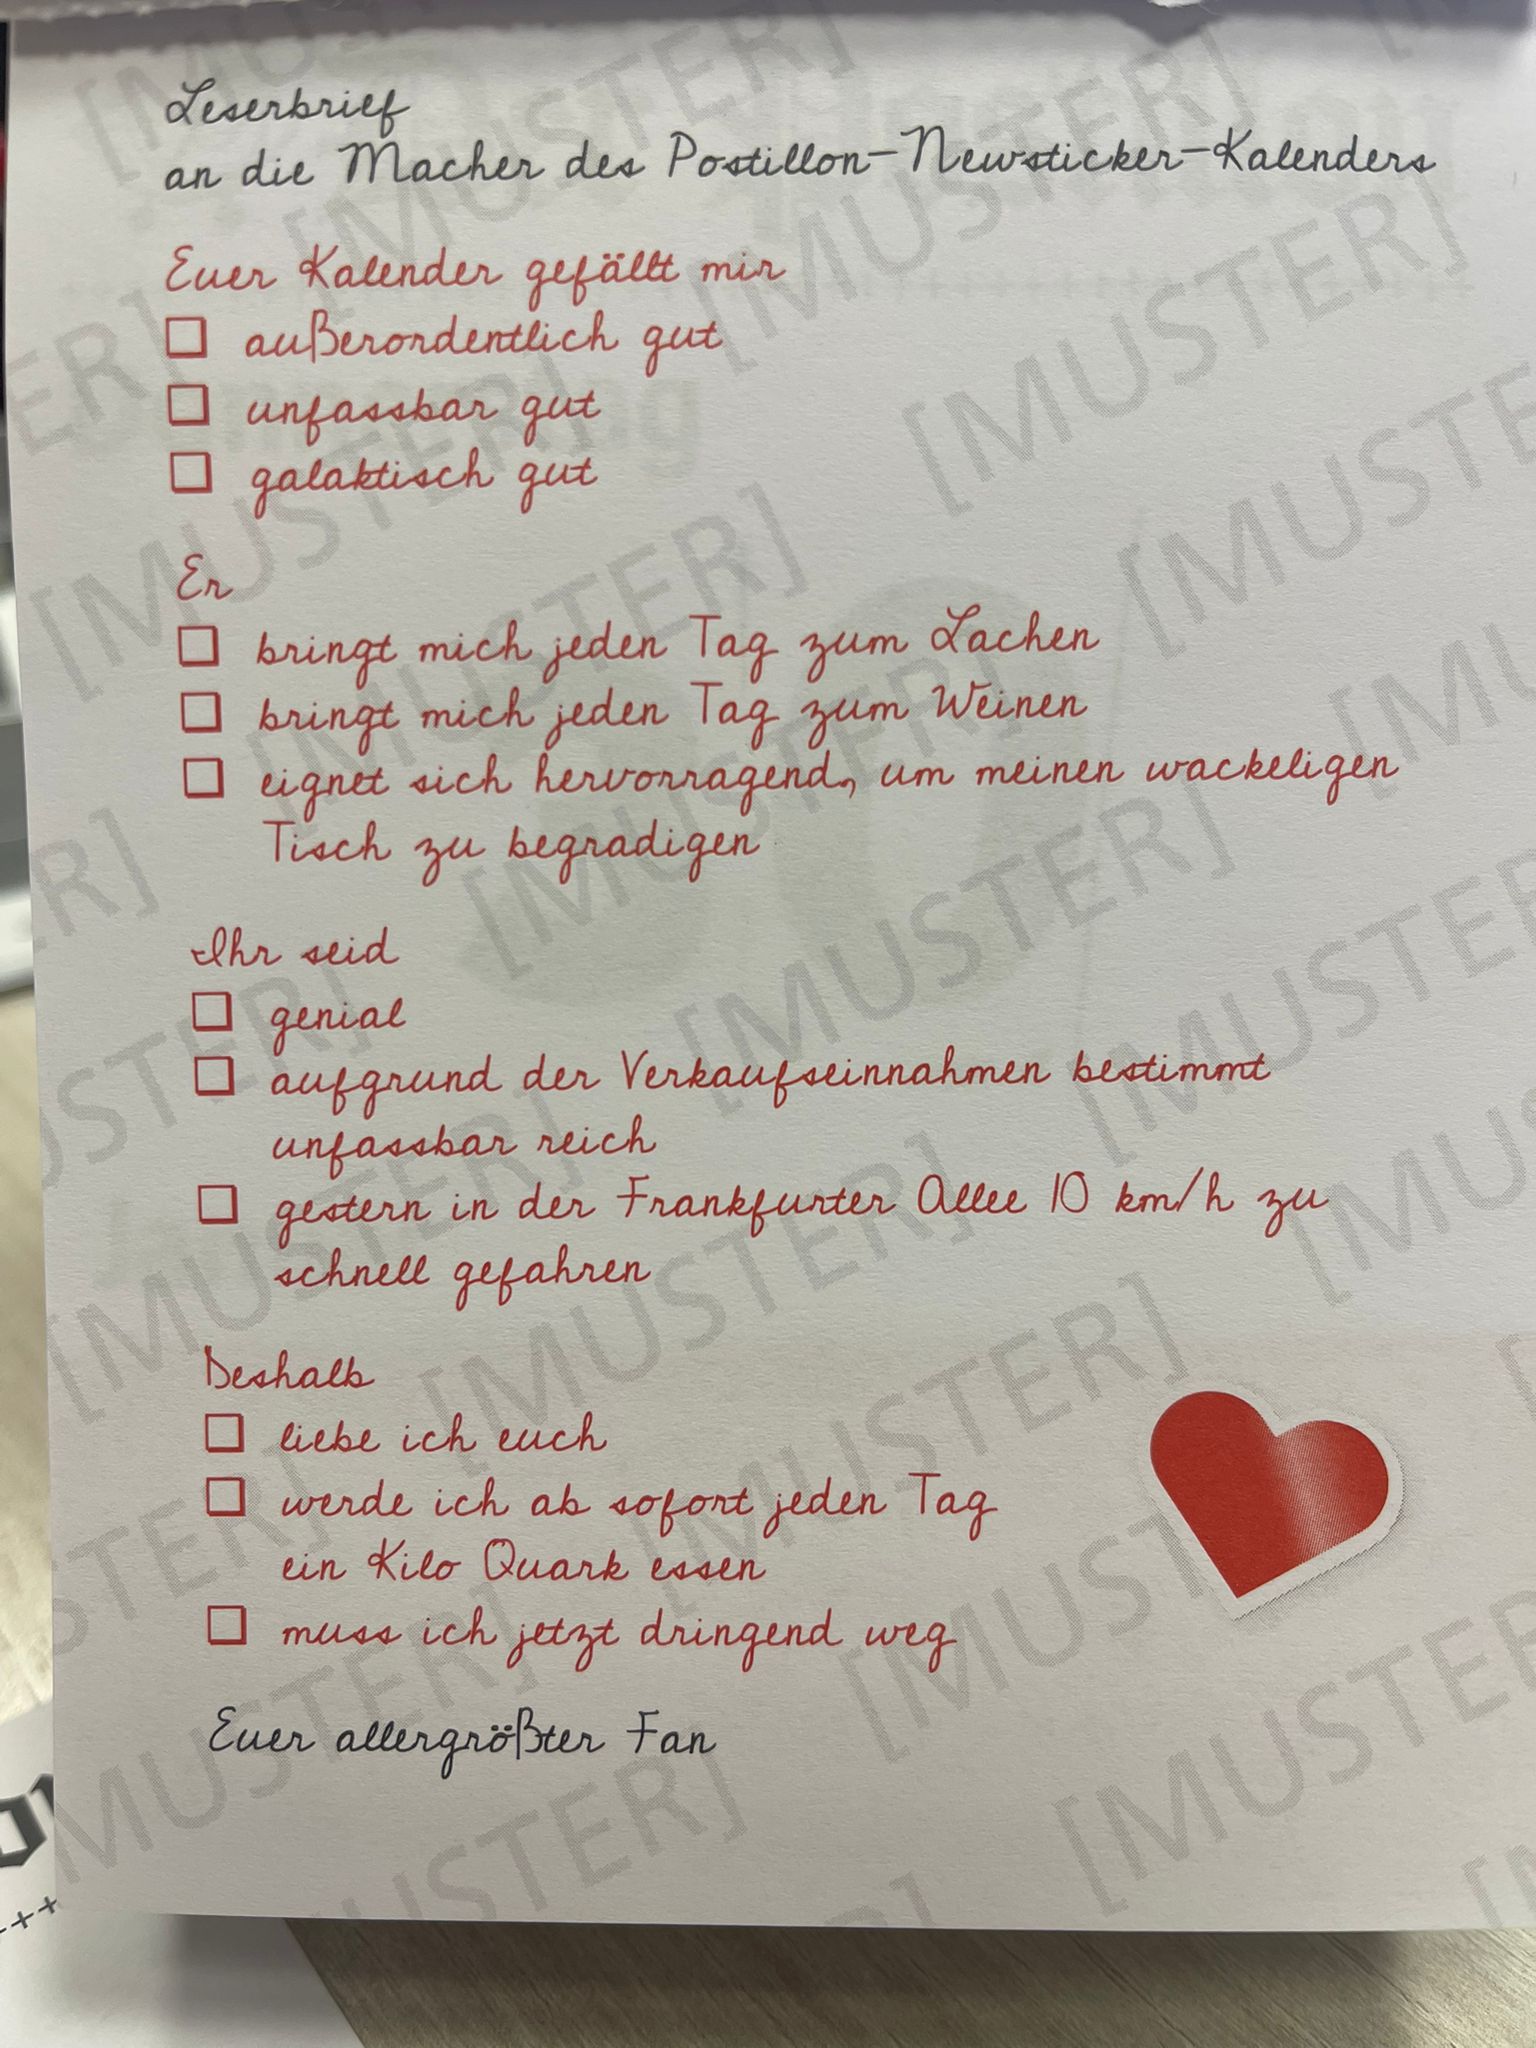 Leserbrief
an die Macher des Postillon-Newsticker-Kalenders
Euer Kalender gefällt mir
☐ außerordentlich gut
☐ unfassbar gut
☐ galaktisch gut
Er
☐ bringt mich jeden Tag zum Lachen
☐ bringt mich jeden Tag zum Weinen
☐ eignet sich hervorragend, um meinen wackeligen
Tisch zu begradigen
Ihr seid
☐ genial
☐ aufgrund der Verkaufseinnahmen bestimmt
unfassbar reich
☐ gestern in der Frankfurter Allee 10 km/h zu
schnell gefahren
Deshalb
☐ liebe ich euch
☐ werde ich ab sofort jeden Tag
ein Kilo Quark essen
☐ muss ich jetzt dringend weg
Euer allergrößter Fan
[MUSTER]
+++